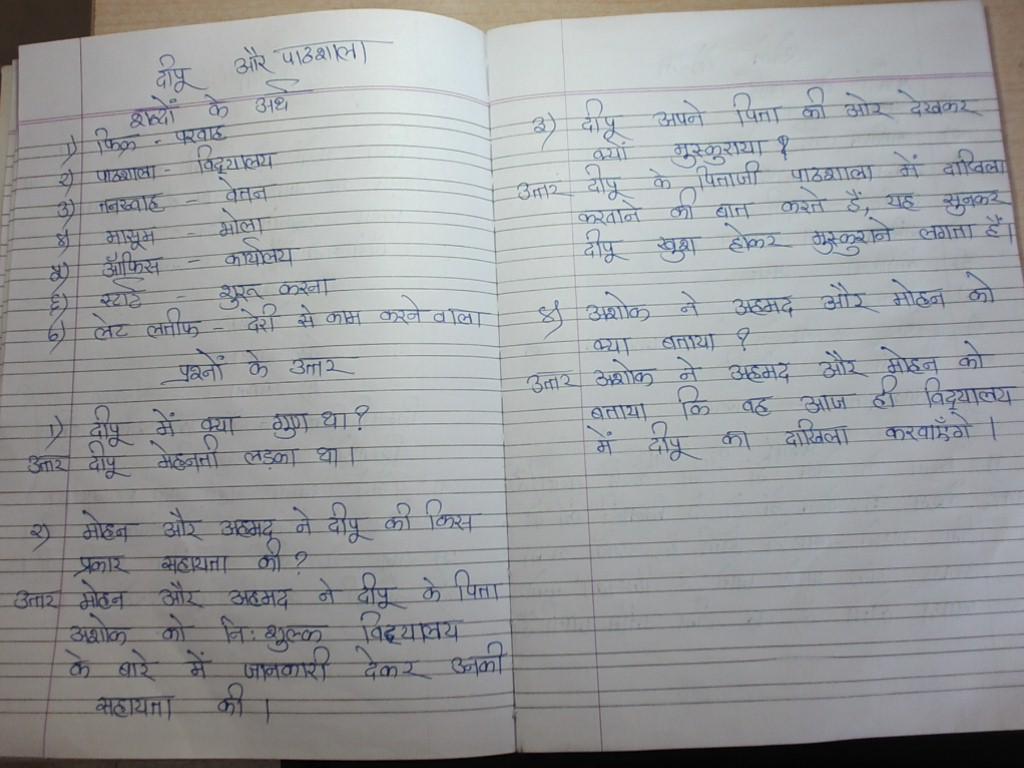 दीपू और पाठशाला
शब्दों के अर्थ
१) फिक्र - परवाह
२) पाठशाला - विद्यालय
३) तनख्वाह - वेतन
४) मासूम - भोला
५) ऑफिस - कार्यालय
६) स्टार्ट - शुरू करना
७) लेट लतीफ - देरी से काम करने वाला
प्रश्नों के उत्तर
१) दीपू में क्या गुण था?
उत्तर दीपू मेहनती लड़का था।
२) मोहन और अहमद ने दीपू की किस
प्रकार सहायता की?
उत्तर मोहन और अहमद ने दीपू के पिता
अशोक को नि:शुल्क विद्यालय
के बारे में जानकारी देकर उनकी
सहायता की।
३) दीपू अपने पिता की ओर देखकर
क्यों मुस्कुराया?
उत्तर दीपू के पिताजी पाठशाला में दाखिला
करवाने की बात करते हैं, यह सुनकर
दीपू खुश होकर मुस्कुराने लगता है।
४) अशोक ने अहमद और मोहन को
क्या बताया?
उत्तर अशोक ने अहमद और मोहन को
बताया कि वह आज ही विद्यालय
में दीपू का दाखिला करवाएँगे।